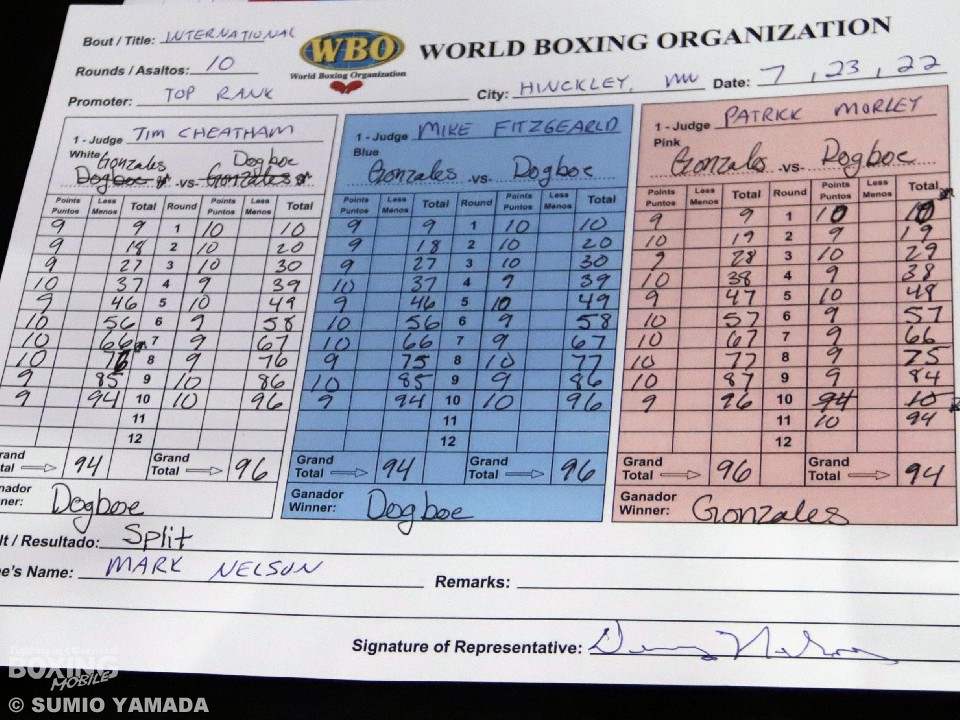 Bout / Title: INTERNATIONAL
WBO
World Boxing Organization
WORLD BOXING ORGANIZATION
Rounds / Asaltos: 10
Promoter: TOP RANK City: HINCKLEY, MN Date: 7, 23, 22
1 - Judge TIM CHEATHAM
White Gonzales Dogboe
Dogboe -vs- Gonzales
Points Puntos Less Menos Total Round Points Puntos Less Menos Total
9 9 1 10 10
9 18 2 10 20
9 27 3 10 30
10 37 4 9 39
9 46 5 10 49
10 56 6 9 58
10 66 7 9 67
10 76 8 9 76
9 85 9 10 86
9 94 10 10 96
11
12
rand tal 94 Grand Total 96
nador ner: Dogboe
1 - Judge MIKE FITZGEARLD
Blue
Gonzales -vs- Dogboe
Points Puntos Less Menos Total Round Points Puntos Less Menos Total
9 9 1 10 10
9 18 2 10 20
9 27 3 10 30
10 37 4 9 39
9 46 5 10 49
10 56 6 9 58
10 66 7 9 67
9 75 8 10 77
10 85 9 9 86
9 94 10 10 96
11
12
Grand Total 94 Grand Total 96
Ganador Winner: Dogboe
1 - Judge PATRICK MORLEY
Pink
Gonzales -vs- Dogboe
Points Puntos Less Menos Total Round Points Puntos Less Menos Total
9 9 1 10 10
10 19 2 9 19
9 28 3 10 29
10 38 4 9 38
9 47 5 10 48
10 57 6 9 57
10 67 7 9 66
10 77 8 9 75
10 87 9 9 84
9 96 10 94 10
11 10 94
12
Grand Total 96 Grand Total 94
Ganador Winner: Gonzales
lt / Resultado: Split
e's Name: MARK NELSON
Remarks:
Signature of Representative:
BOXING
MOBILE
© SUMIO YAMADA